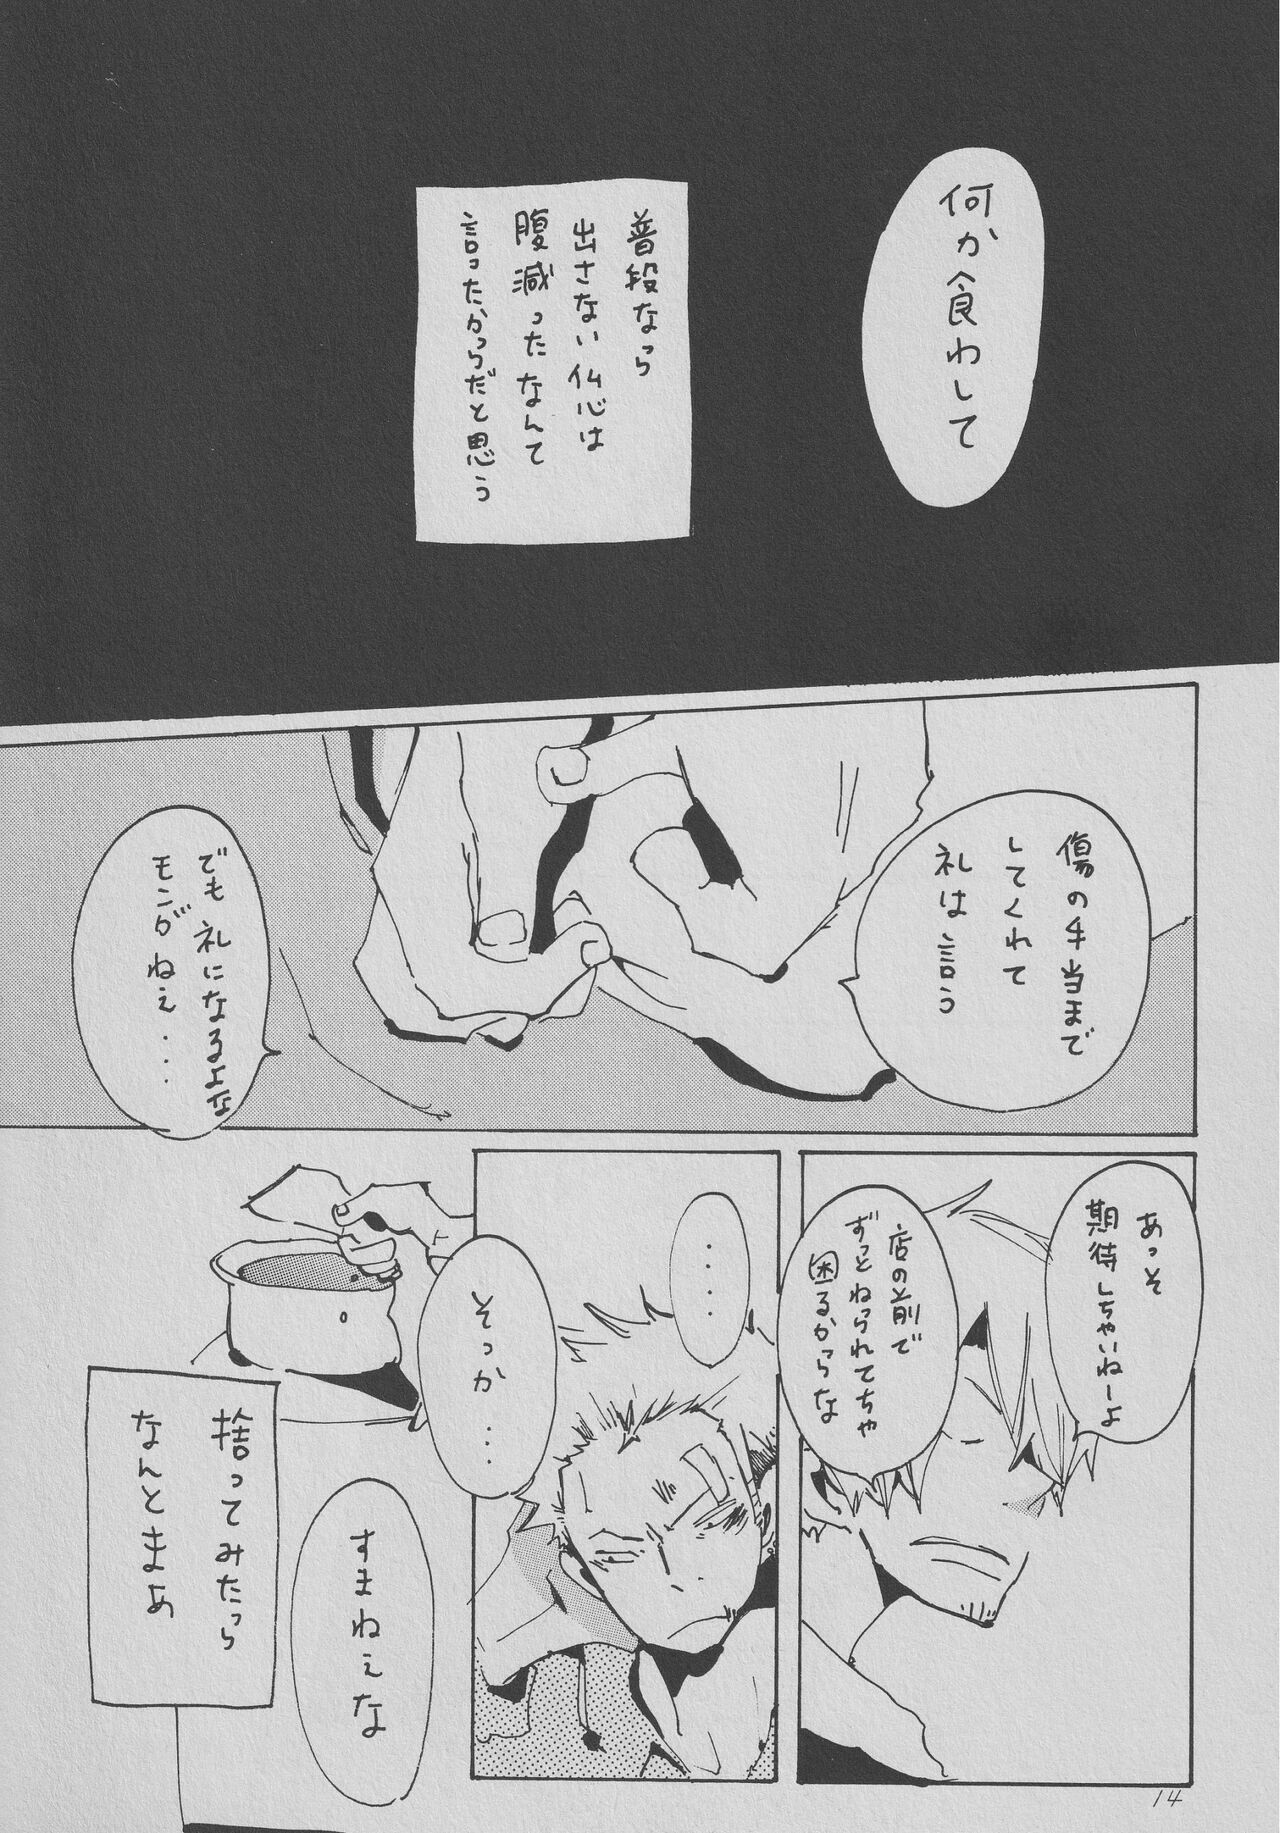 何か食わして
普段なら
出さない仏心は
腹減ったなんて
言ったからだと思う
傷の手当まで
してくれて
礼は言う
でも礼になるよな
モンがねぇ・・・
あっそ
期待しちゃいねーよ
店の前で
ずっとねられてちゃ
困るからな
・・・・
そっか・・・
すまねぇな
捨ってみたら
なんとまあ
14